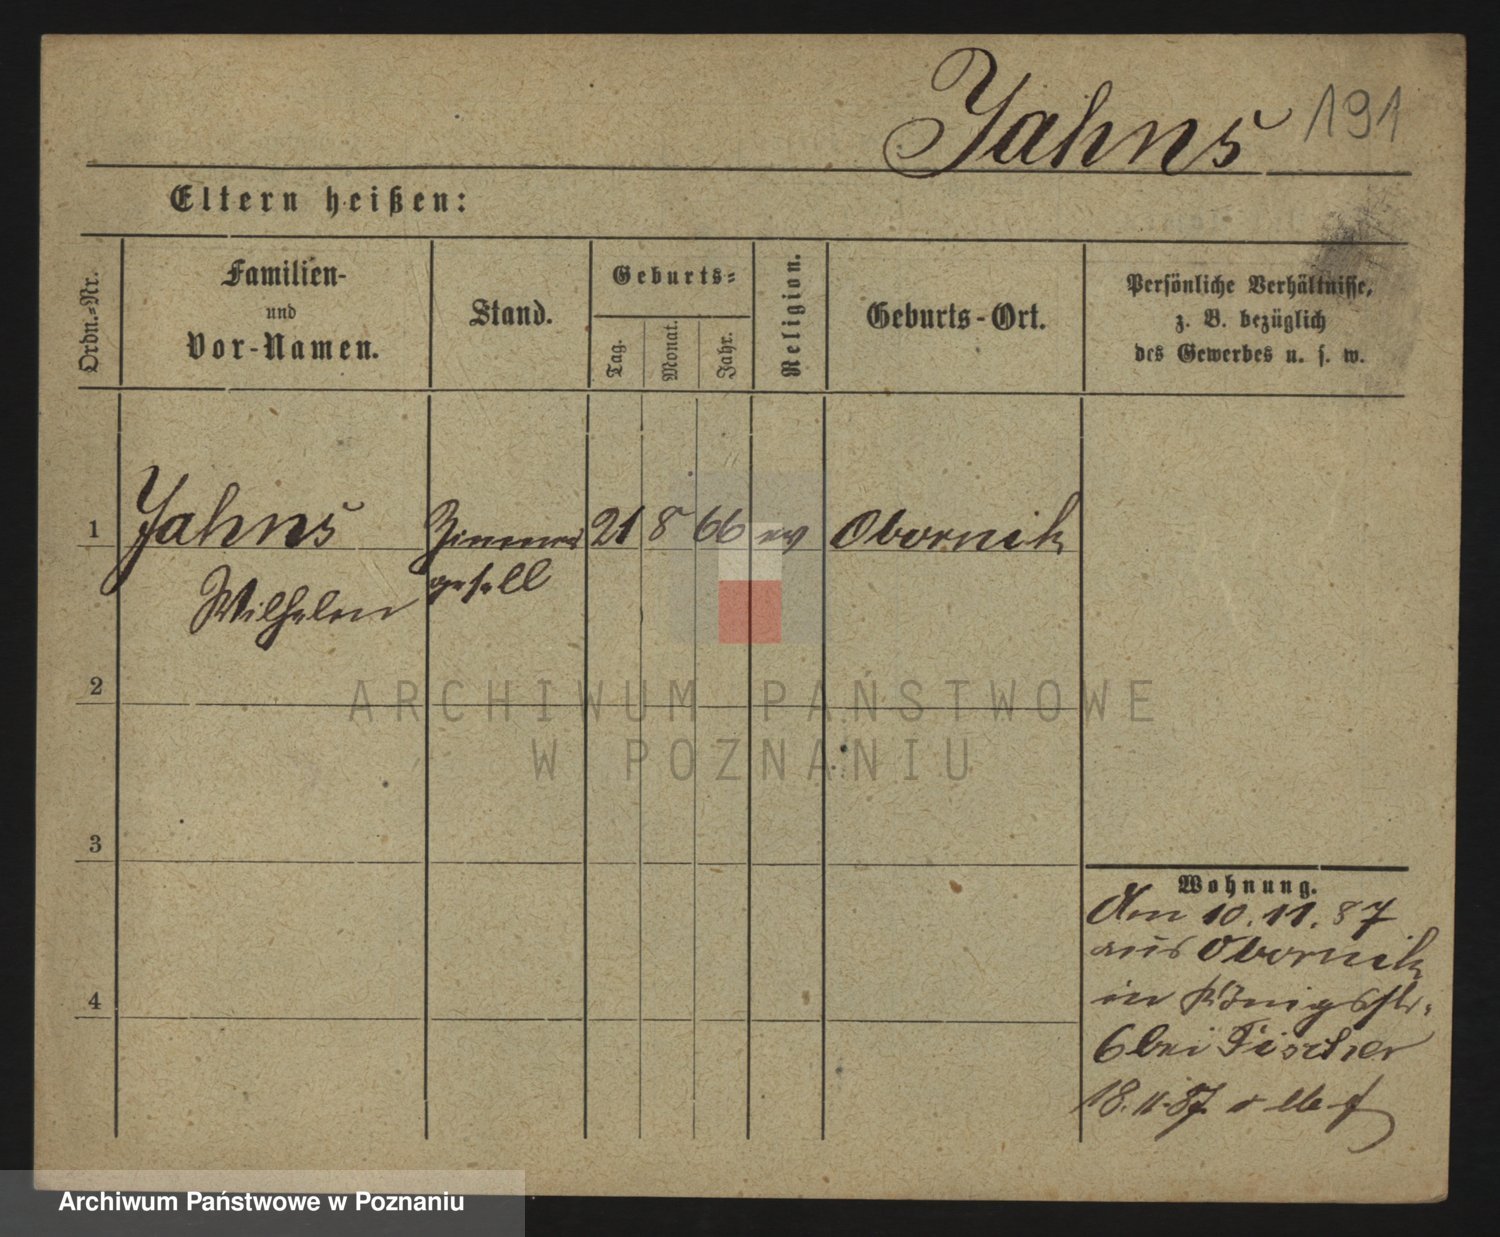 Jahns 191
Eltern heißen:
Ordn.-Nr.
Familien-
und
Vor-Namen.
Stand.
Geburts-
Tag.
Monat.
Jahr.
Religion.
Geburts-Ort.
Persönliche Verhältnisse,
z. B. bezüglich
des Gewerbes u. s. w.
1 Jahns Zimmer 21 8 66 ev Obornik
Wilhelm gesell
2
ARCHIWUM PAŃSTWOWE
W POZNANIU
3
4
Wohnung.
Den 10.11.87
aus Obornik
in Königsstr.
6 bei Fischer
18.11.87
Archiwum Państwowe w Poznaniu